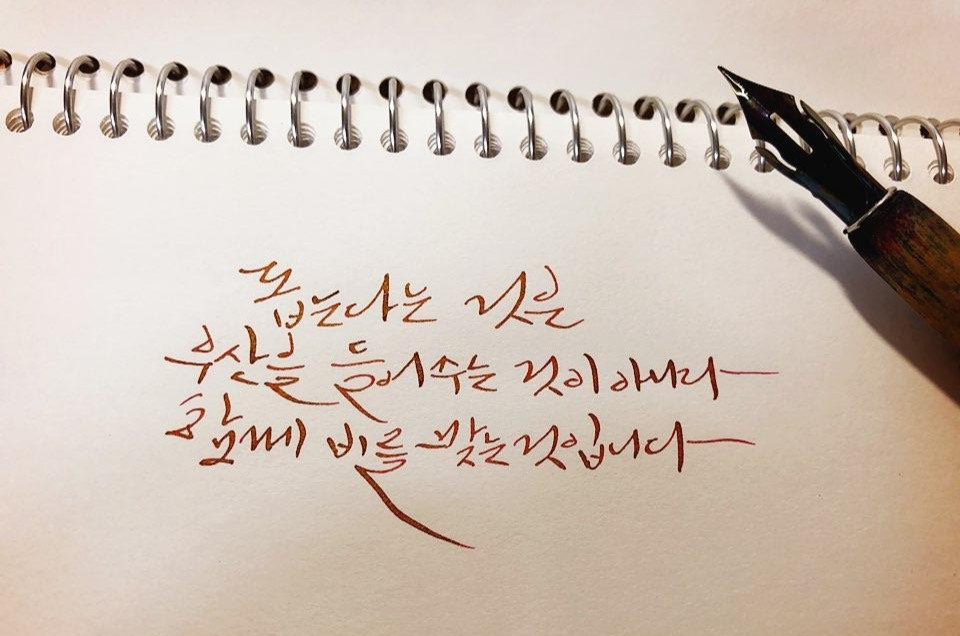 돕는다는 것은
우산을 들어주는 것이 아니라
함께 비를 맞는 것입니다